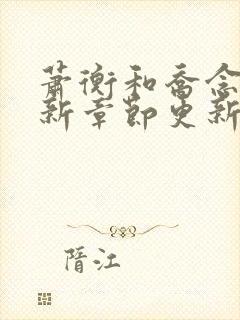 萧衡和乔念
新章节更新
隋江